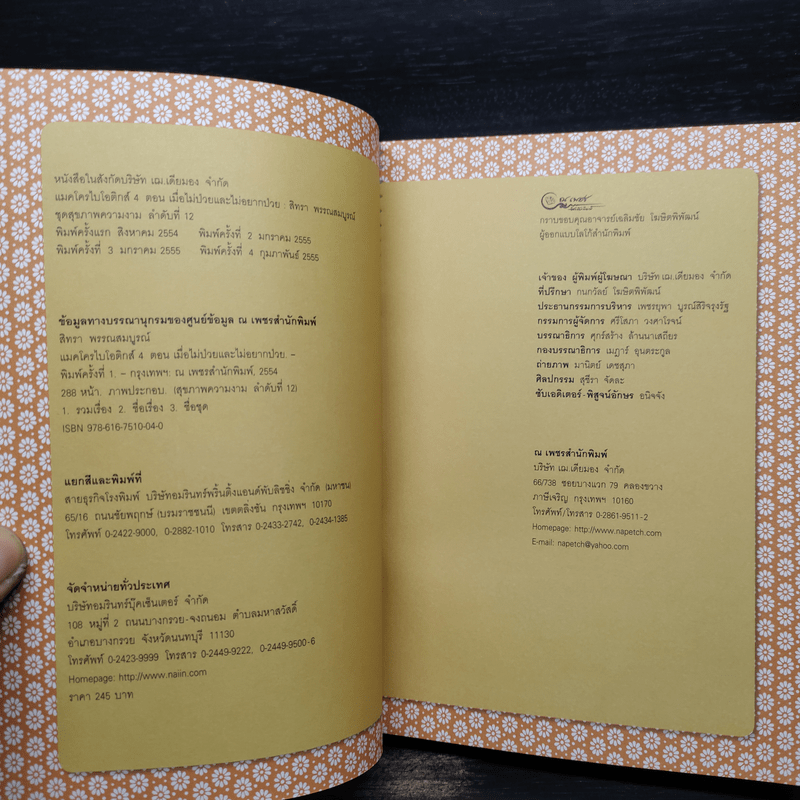 หนังสือในสังกัดบริษัท เฌ.เดียมอง จำกัด
แมคโครไบโอติกส์ 4 ตอน เมื่อไม่ป่วยและไม่อยากป่วย : สิทรา พรรณสมบูรณ์
ชุดสุขภาพความงาม ลำดับที่ 12
พิมพ์ครั้งแรก สิงหาคม 2554 พิมพ์ครั้งที่ 2 มกราคม 2555
พิมพ์ครั้งที่ 3 มกราคม 2555 พิมพ์ครั้งที่ 4 กุมภาพันธ์ 2555
ข้อมูลทางบรรณานุกรมของศูนย์ข้อมูล ณ เพชรสำนักพิมพ์
สิทรา พรรณสมบูรณ์
แมคโครไบโอติกส์ 4 ตอน เมื่อไม่ป่วยและไม่อยากป่วย. –
พิมพ์ครั้งที่ 1. – กรุงเทพฯ: ณ เพชรสำนักพิมพ์, 2554
288 หน้า. ภาพประกอบ. (สุขภาพความงาม ลำดับที่ 12)
1. รวมเรื่อง 2. ชื่อเรื่อง 3. ชื่อชุด
ISBN 978-616-7510-04-0
แยกสีและพิมพ์ที่
สายธุรกิจโรงพิมพ์ บริษัทอมรินทร์พริ้นติ้งแอนด์พับลิชชิ่ง จำกัด (มหาชน)
65/16 ถนนชัยพฤกษ์ (บรมราชชนนี) เขตตลิ่งชัน กรุงเทพฯ 10170
โทรศัพท์ 0-2422-9000, 0-2882-1010 โทรสาร 0-2433-2742, 0-2434-1385
จัดจำหน่ายทั่วประเทศ
บริษัทอมรินทร์บุ๊คเซ็นเตอร์ จำกัด
108 หมู่ที่ 2 ถนนบางกรวย-จงถนอม ตำบลมหาสวัสดิ์
อำเภอบางกรวย จังหวัดนนทบุรี 11130
โทรศัพท์ 0-2423-9999 โทรสาร 0-2449-9222, 0-2449-9500-6
Homepage: http://www.naiin.com
ราคา 245 บาท
ณ เพชร
กราบขอบคุณอาจารย์เฉลิมชัย โฆษิตพิพัฒน์
ผู้ออกแบบโลโก้สำนักพิมพ์
เจ้าของ ผู้พิมพ์ผู้โฆษณา บริษัท เฌ.เดียมอง จำกัด
ที่ปรึกษา กนกวัลย์ โฆษิตพิพัฒน์
ประธานกรรมการบริหาร เพชรยุพา บูรณ์สิริจรุงรัฐ
กรรมการผู้จัดการ ศรีโสภา วงศาโรจน์
บรรณาธิการ ศุกร์สร้าง ล้านนาเสถียร
กองบรรณาธิการ เมฎาร์ อุนตระกูล
ถ่ายภาพ มานิตย์ เดชสุภา
ศิลปกรรม สุธีรา จัดละ
ซับเอดิเตอร์-พิสูจน์อักษร อนิจจัง
ณ เพชรสำนักพิมพ์
บริษัท เฌ.เดียมอง จำกัด
66/738 ซอยบางแวก 79 คลองขวาง
ภาษีเจริญ กรุงเทพฯ 10160
โทรศัพท์/โทรสาร 0-2861-9511-2
Homepage: http://www.napetch.com
E-mail: napetch@yahoo.com